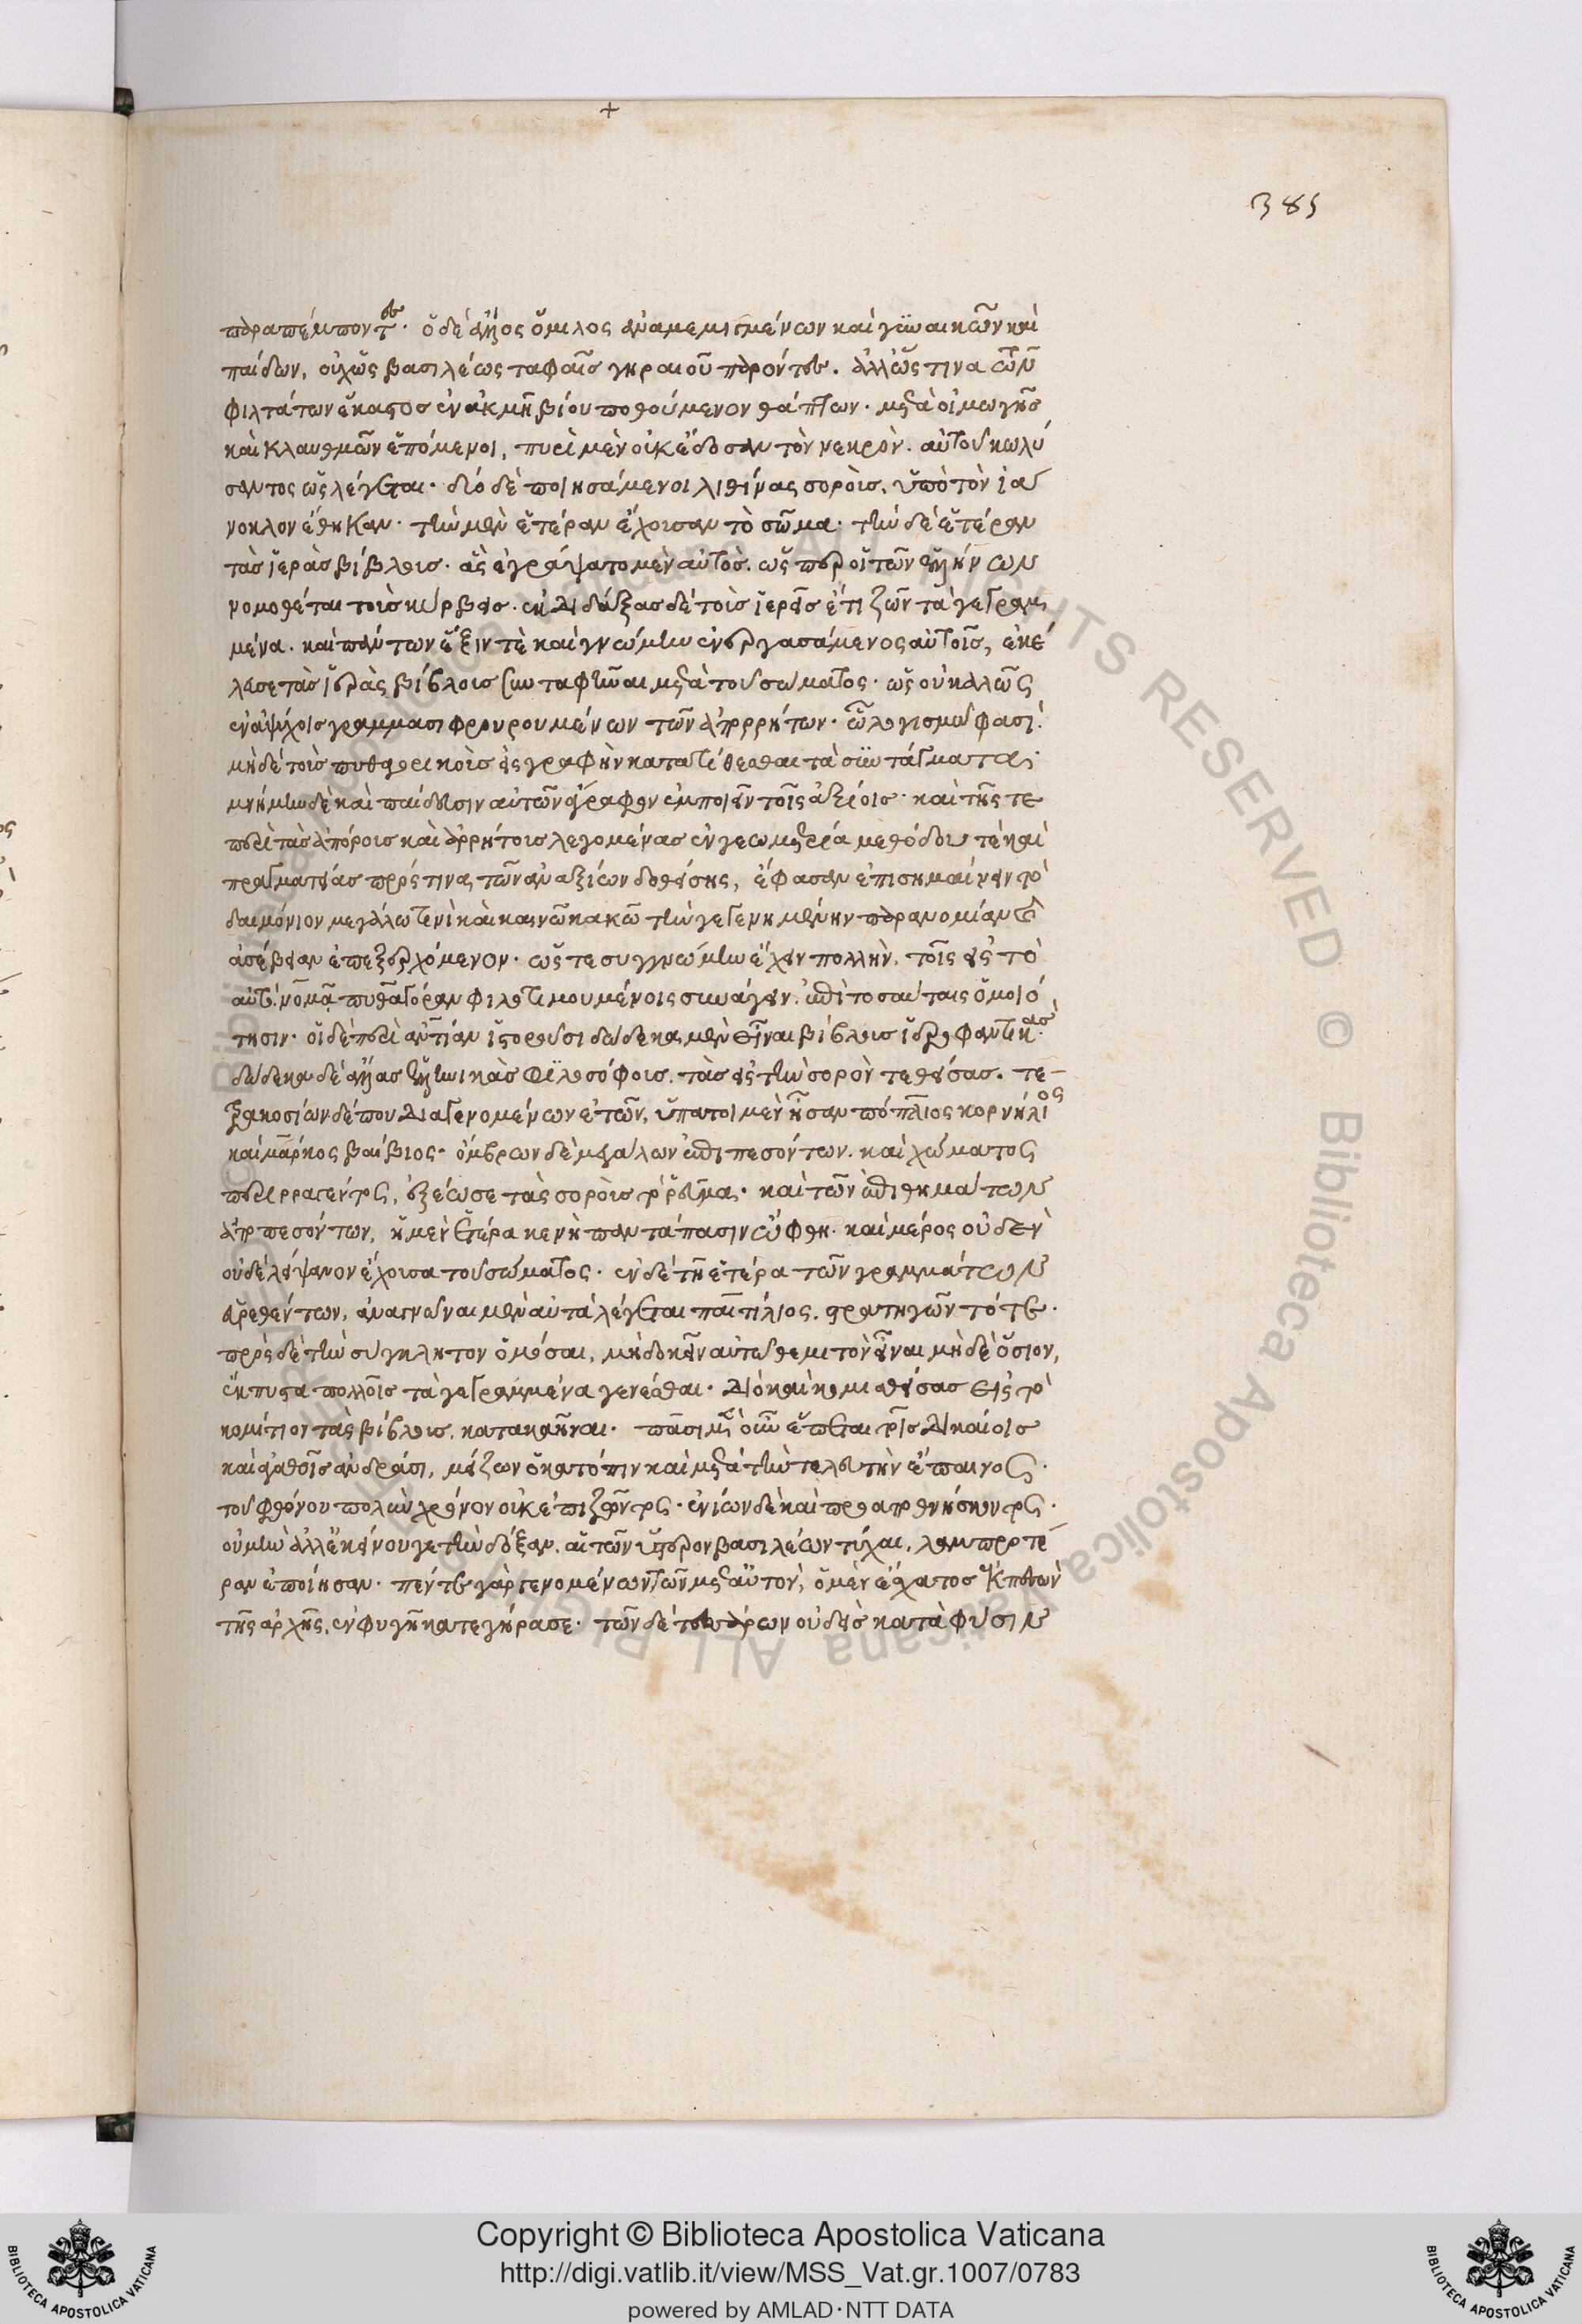 385
παραπέμποντες· ὁ δὲ ἄλλος ὅμιλος ἀναμεμιγμένων καὶ γυναικῶν καὶ
παίδων, οὐχ ὡς βασιλέως ταφαῖς γηραιοῦ παρόντες. ἀλλ' ὥς τινα τῶν
φιλτάτων ἕκαστος ἐν ἀκμῇ βίου ποθούμενον θάπτων· μετὰ οἰμωγῆς
καὶ κλαυθμῶν ἑπόμενοι, πυρὶ μὲν οὐκ ἔδοσαν τὸν νεκρὸν. αὐτοῦ κωλύ
σαντος ὡς λέγεται· δύο δὲ ποιησάμενοι λιθίνας σοροὺς, ὑπὸ τὸν ἰα
νοκλον ἔθηκαν· τὴν μὲν ἑτέραν ἔχουσαν τὸ σῶμα· τὴν δὲ ἑτέραν
τὰς ἱερὰς βίβλους· ἃς ἐγράψατο μὲν αὐτὸς. ὥσπερ οἱ τῶν ἑλλήνων
νομοθέται τοὺς κύρβεις· ἐκδιδάξας δὲ τοὺς ἱερεῖς ἔτι ζῶν τὰ γεγραμ
μένα. καὶ πάντων ἕξιν τὲ καὶ γνώμην ἐνεργασάμενος αὐτοῖς, ἐκέ
λευσε τὰς ἱερὰς βίβλους συνταφῆναι μετὰ τοῦ σώματος· ὡς οὐ καλῶς
ἐν ἀψύχοις γράμμασι φρουρουμένων τῶν ἀπορρήτων· ᾧ λογισμῷ φασὶ
μηδὲ τοὺς πυθαγορικοὺς εἰς γραφὴν κατατίθεσθαι τὰ συντάγματα·
μνήμην δὲ καὶ παίδευσιν αὐτῶν ἄγραφον ἐμποιεῖν τοῖς ἀξίοις· καὶ τῆς τε
περὶ τὰς ἀπόρους καὶ ἀρρήτους λεγομένας ἐν γεωμετρία μεθόδου τὲ καὶ
πραγματείας πρός τινα τῶν ἀναξίων δοθείσης, ἔφασαν ἐπισημαίνειν τὸ
δαιμόνιον μεγάλω τινὶ καὶ καινῶ κακῶ τὴν γεγενημένην παρανομίαν καὶ
ἀσέβειαν ἐπεξερχόμενον· ὥς τε συγγνώμην ἔχειν πολλὴν, τοῖς εἰς τὸ
αὐτὸ νομᾶ πυθαγόραν φιλοτιμουμένοις συνάγειν. ἐπὶ τοσαύταις ὁμοιό
τησιν· οἱ δὲ περὶ ἀντίαν ἱστοροῦσι δώδεκα μὲν εἶναι βίβλους ἱεροφαντικὰς·
δώδεκα δὲ ἄλλας ἑλληνικὰς φιλοσόφους. τὰς εἰς τὴν σορὸν τεθείσας. τε-
τρακοσίων δέ που διαγενομένων ἐτῶν, ὕπατοι μὲν ἦσαν πόπλιος κορνήλιος
καὶ μάρκος βαίβιος· ὄμβρων δὲ μεγάλων ἐπιπεσόντων. καὶ χώματος
περιρραγέντος, ἐξέωσε τὰς σοροὺς τὸ ῥεῦμα· καὶ τῶν ἐπιθημάτων
ἀποπεσόντων, ἡ μὲν ἑτέρα κενὴ παντάπασιν ὤφθη. καὶ μέρος οὐδὲν
οὐδὲ λείψανον ἔχουσα τοῦ σώματος· ἐν δὲ τῇ ἑτέρα τῶν γραμμάτων
εὑρεθέντων, ἀναγνῶναι μὲν αὐτὰ λέγεται παιτίλιος. στρατηγῶν τότε·
πρὸς δὲ τὴν σύγκλητον ὀμόσαι, μὴ δοκεῖν αὐτῷ θεμιτὸν εἶναι μηδὲ ὅσιον,
ἔκπυστα πολλοῖς τὰ γεγραμμένα γενέσθαι· διὸ καὶ κομισθείσας εἰς τὸ
κομίτιον τὰς βίβλους, κατακαῆναι· πᾶσι μὲν οὖν ἕπεται τοῖς δικαίοις
καὶ ἀγαθοῖς ἀνδράσι, μείζων ὁ κατόπιν καὶ μετὰ τὴν τελευτὴν ἔπαινος·
τοῦ φθόνου πολὺν χρόνον οὐκ ἐπιζῶντος· ἐνίων δὲ καὶ προαποθνήσκοντος·
οὐ μὴν ἀλλ' ἐκείνου γε τὴν δόξαν, αἱ τῶν ὕστερον βασιλέων τύχαι, λαμπροτέ
ραν ἐποίησαν· πέντε γὰρ γενομένων τῶν μετ' αὐτὸν, ὁ μὲν ἔσχατος ἐκπεσὼν
τῆς ἀρχῆς, ἐν φυγῇ κατεγήρασε· τῶν δὲ τεσσάρων οὐδεὶς κατὰ φύσιν
Copyright © Biblioteca Apostolica Vaticana
http://digi.vatlib.it/view/MSS_Vat.gr.1007/0783
powered by AMLAD·NTT DATA